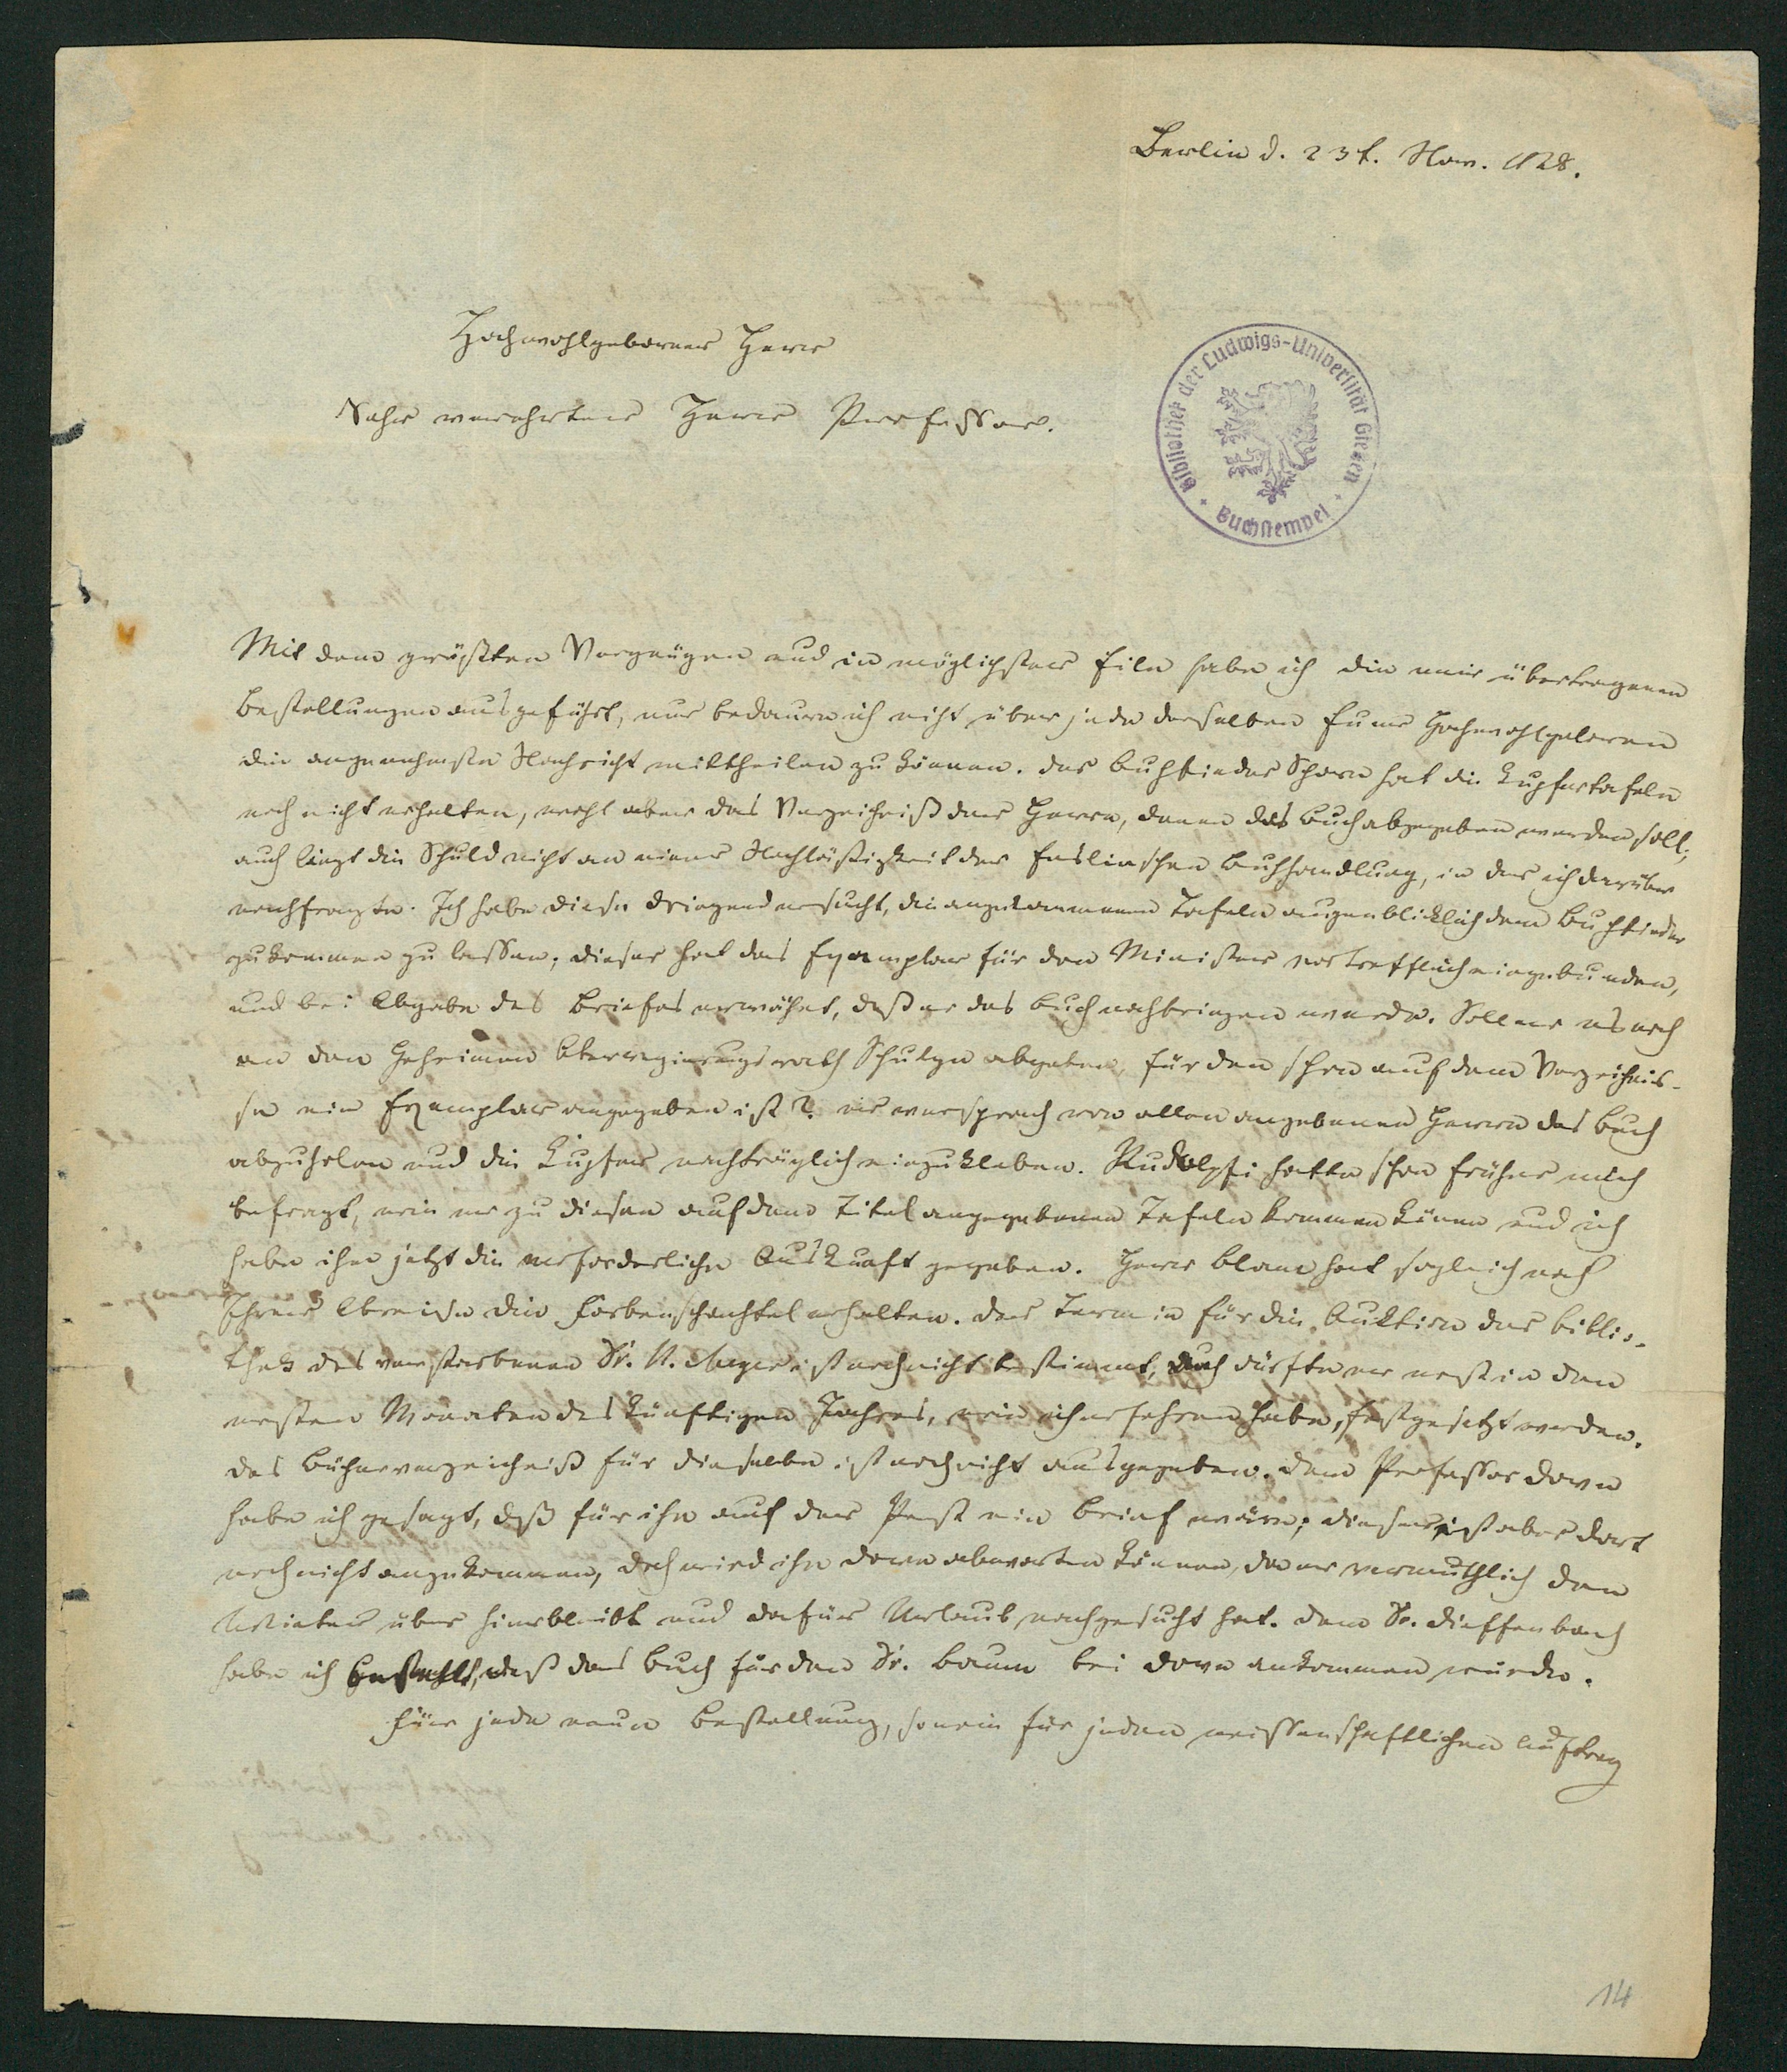 Berlin d. 23t. Nov. 1828.
Hochwohlgeborner Herr
Sehr verehrter Herr Professor.
Bibliothek der Ludwigs-Universität Gießen
Buchstempel
Mit dem größten Vergnügen und in möglichster Eile habe ich die mir übertragenen
Bestellungen ausgeführt, nur bedaure ich nicht über jede derselben Euer Hochwohlgeboren
die angenehmste Nachricht mittheilen zu können. Der Buchbinder Schorn hat die Kupfertafeln
noch nicht erhalten, wohl aber das Verzeichniß der Herrn, denen das Buch abgegeben werden soll;
auch liegt die Schuld nicht an einer Nachläßigkeit der Enslinschen Buchhandlung, in der ich darüber
nachfragte. Ich habe diese dringend ersucht, die angekommenen Tafeln augenblicklich dem Buchbinder
zukommen zu lassen; dieser hat das Exemplar für den Minister vortrefflich eingebunden,
und bei Abgabe des Briefes erwähnt, daß er das Buch nachbringen werde. Soll er es noch
an den Geheimen Oberregierungsrath Schulze abgeben, für den schon auf dem Verzeichnis-
se ein Exemplar angegeben ist? er versprach von allen angegebenen Herrn das Buch
abzuholen und die Kupfer nachträglich einzukleben. Rudolphi hatte schon früher mich
befragt, wie er zu diesen auf dem Titel angegebenen Tafeln kommen könne und ich
habe ihm jetzt die erforderliche Auskunft gegeben. Herr Blame hat sogleich nach
Ihrer Abreise die Farbenschachtel erhalten. Der Termin für die Auktion der Biblio-
thek des verstorbenen Dr. N. Meyer ist noch nicht bestimmt, doch dürfte er erst in den
ersten Monaten des künftigen Jahres, wie ich erfahren habe, festgesetzt werden.
Das Bücherverzeichniß für dieselbe ist noch nicht ausgegeben. Dem Professor Dove
habe ich gesagt, daß für ihn auf der Post ein Brief wäre; dieser ist aber dort
noch nicht angekommen, doch wird ihn Dove abwarten können, da er vermuthlich den
Winter über hierbleibt und dafür Urlaub nachgesucht hat. Dem Dr. Dieffenbach
habe ich bestellt, daß das Buch für den Dr. Baum bei Dove ankommen würde.
Für jede neue Bestellung, so wie für jeden wissenschaftlichen Auftrag
14